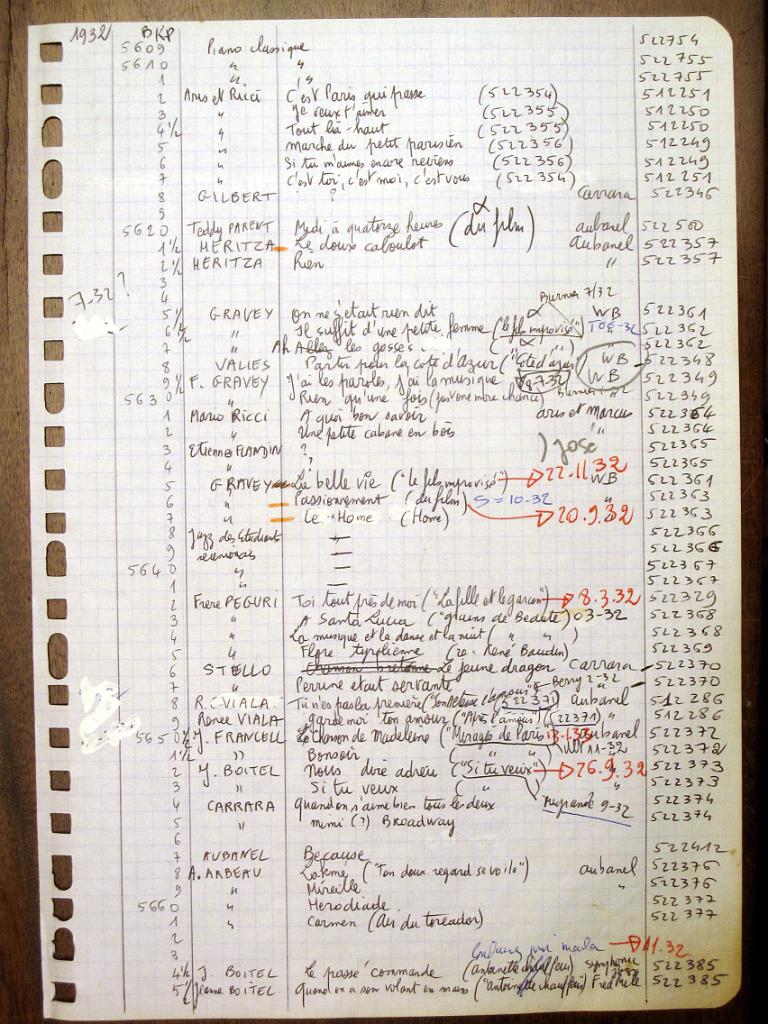 1932 BKP
5609 Piano classique 522754
5610 " " 522755
1 " " 522755
2 Aris et Ricci C'est Paris qui passe (522354) 512251
3 " Je veux t'aimer (522355) 512250
4 1/2 " Tout là-haut (522355) 512250
5 " marche du petit parisien (522356) 512249
6 " Si tu m'aimes encore reviens (522356) 512249
7 " C'est toi, c'est moi, c'est vous (522354) 512251
8 GILBERT ? Carrara 522346
9
5620 Teddy PARENT Midi à quatorze heures (du film) aubanel 522500
1 1/2 HERITZA Le doux caboulot Aubanel 522357
2 1/2 HERITZA Rien " 522357
3
7-32 ? 4
Burnier 7/32
5 1/2 GRAVEY On ne s'était rien dit WB 522361
6 1/2 " Il suffit d'une petite femme ("le fils improvisé") 522362
7 " Ah Allez les gosses " 522362
8 VALIES Partir pour la cote d'Azur ("Cote d'azur") WB 522348
9 1/2 F. GRAVEY J'ai les paroles, j'ai la musique WB 522349
5630 " Rien qu'une fois (just one more chance) 522349
1 Mario RICCI A quoi bon savoir aris et Marcus 522364
2 " Une petite cabane en bois " 522364
3 Etienne FLANDIN ? ) José 522365
4 " ? 522365
5 GRAVEY La belle vie ("le fils improvisé") → 22.11.32 WB 522361
6 " Passionnément (du film) S = 10-32 522363
7 " Le Home (Home) → 20.9.32 522363
8 Jazz des Etudiants — 522366
9 — 522366
5640 " — 522367
1 " — 522367
2 Frere PEGURI Toi tout près de moi ("La fille et le garçon") → 8.3.32 522329
3 " A Santa Lucia ("grains de Beauté") 03-32 522368
4 " La musique et la danse et la nuit ( " " ) 522368
5 " Flore tyrolienne (ro. René Baudin) 522369
6 STELLO Chanson bretonne Le jeune dragon Carrara 522370
7 " Perrine etait servante 522370
8 R. VIALA Tu n'es pas la première (522371) aubanel 512286
9 Renee VIALA garde moi ton amour ("Après l'amour") (522371) " 512286
5650 1/2 J. FRANCELL La chanson de Madeleine ("Mirages de Paris") aubanel 522372
1 1/2 " Bonsoir ( " " ) 11-32 522372
2 J. BOITEL Nous dire adieu ("Si tu veux") → 26.9.32 522373
3 " Si tu veux " 522373
4 CARRARA quand on s'aime bien tous les deux 9-32 522374
5 " mimi (?) Broadway 522374
6
7 AUBANEL Because 522412
8 A. AABEAU Lakmé ("Ton doux regard se voile") aubanel 522376
9 " Mireille " 522376
5660 " Herodiade 522377
1 " Carmen (Air du toreador) 522377
2
3 → 11.32
4 1/2 J. BOITEL le passé commande (antoinette chauffeur) symphonic 522385
5 1/2 Jeanne BOITEL Quand on a son volant en mains ("antoinette chauffeur) Fred Mélé 522385